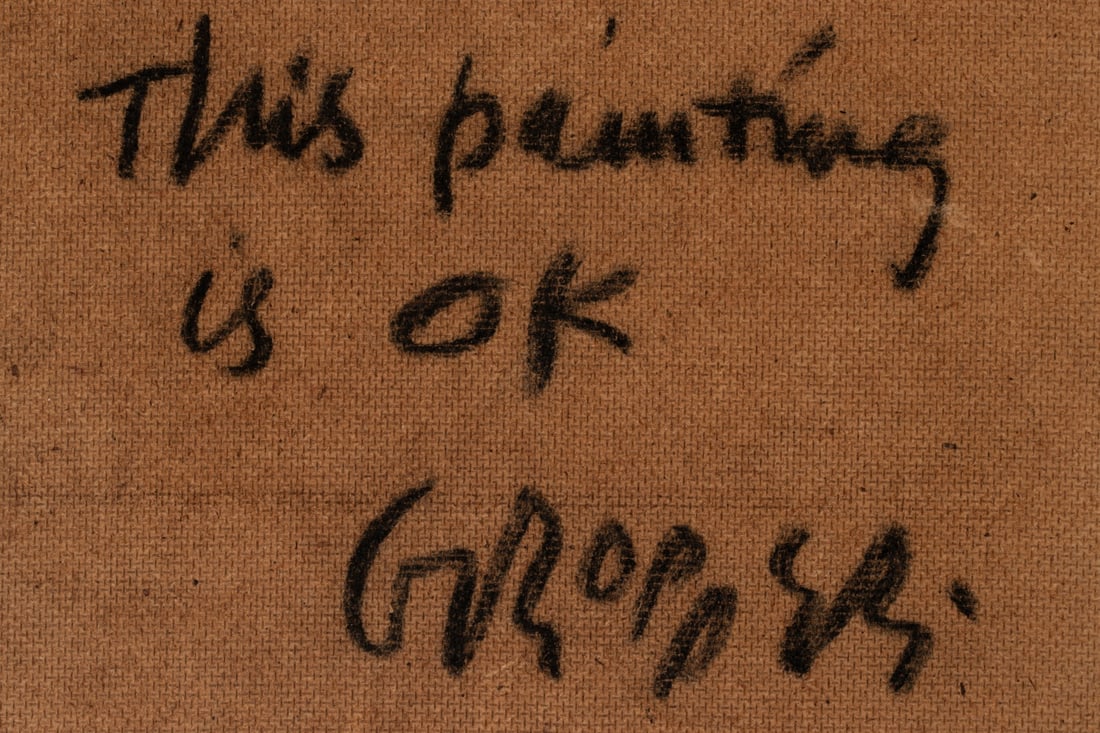 This painting
is OK
GROPPER.